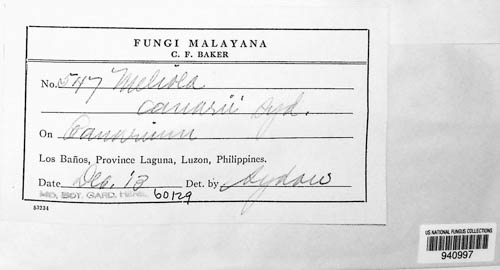 FUNGI MALAYANA
C. F. BAKER
No. 547 Meliola
canarii Syd.
On Canarium
Los Baños, Province Laguna, Luzon, Philippines.
Date Dec. '13 Det. by Sydow
MO. BOT. GARD. HERB. 60129
53234
US NATIONAL FUNGUS COLLECTIONS
940997